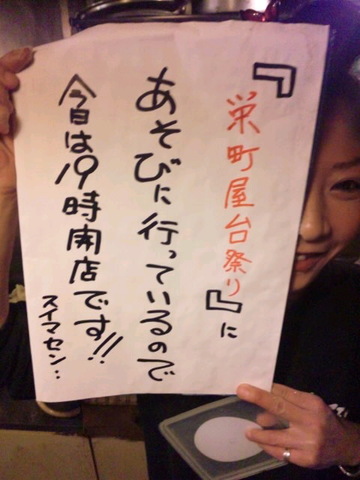 『栄町屋台祭り』に
あそびに行っているので
今日は19時開店です!!
スイマセン..